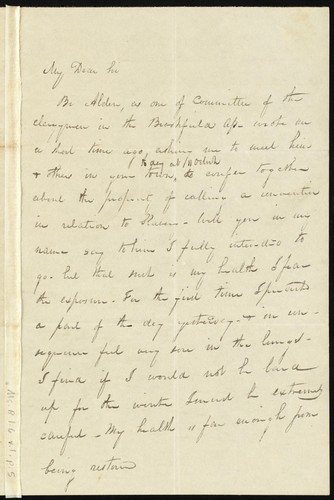 My Dear Sir
Alden, as one of Committee of the
clergymen in the Brookfield Ass wrote me
a short time ago, asking me to meet him
to day at
& others in your town, to confer together
about the of calling a convention
in relation to Slavery - Will you in my
name say to him I fully intended to
go. but that such is my health I fear
the exposure - For the first time I preached
a part of the day yesterday - & in con-
sequence feel very sore in the lungs -
I find if I would not be laid
up for the winter I must be extremely
careful - My health is far enough from
being restored